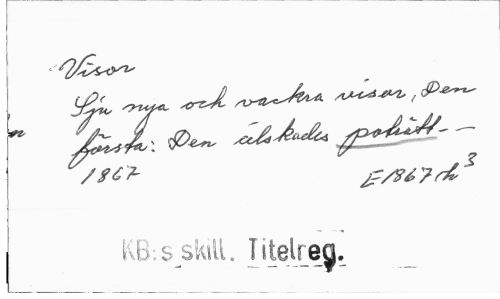 Visor
Sju nya och vackra visor, Den
första: Den älskades poträtt--
1867
E1867 h³
KB:s skill. Titelreg.